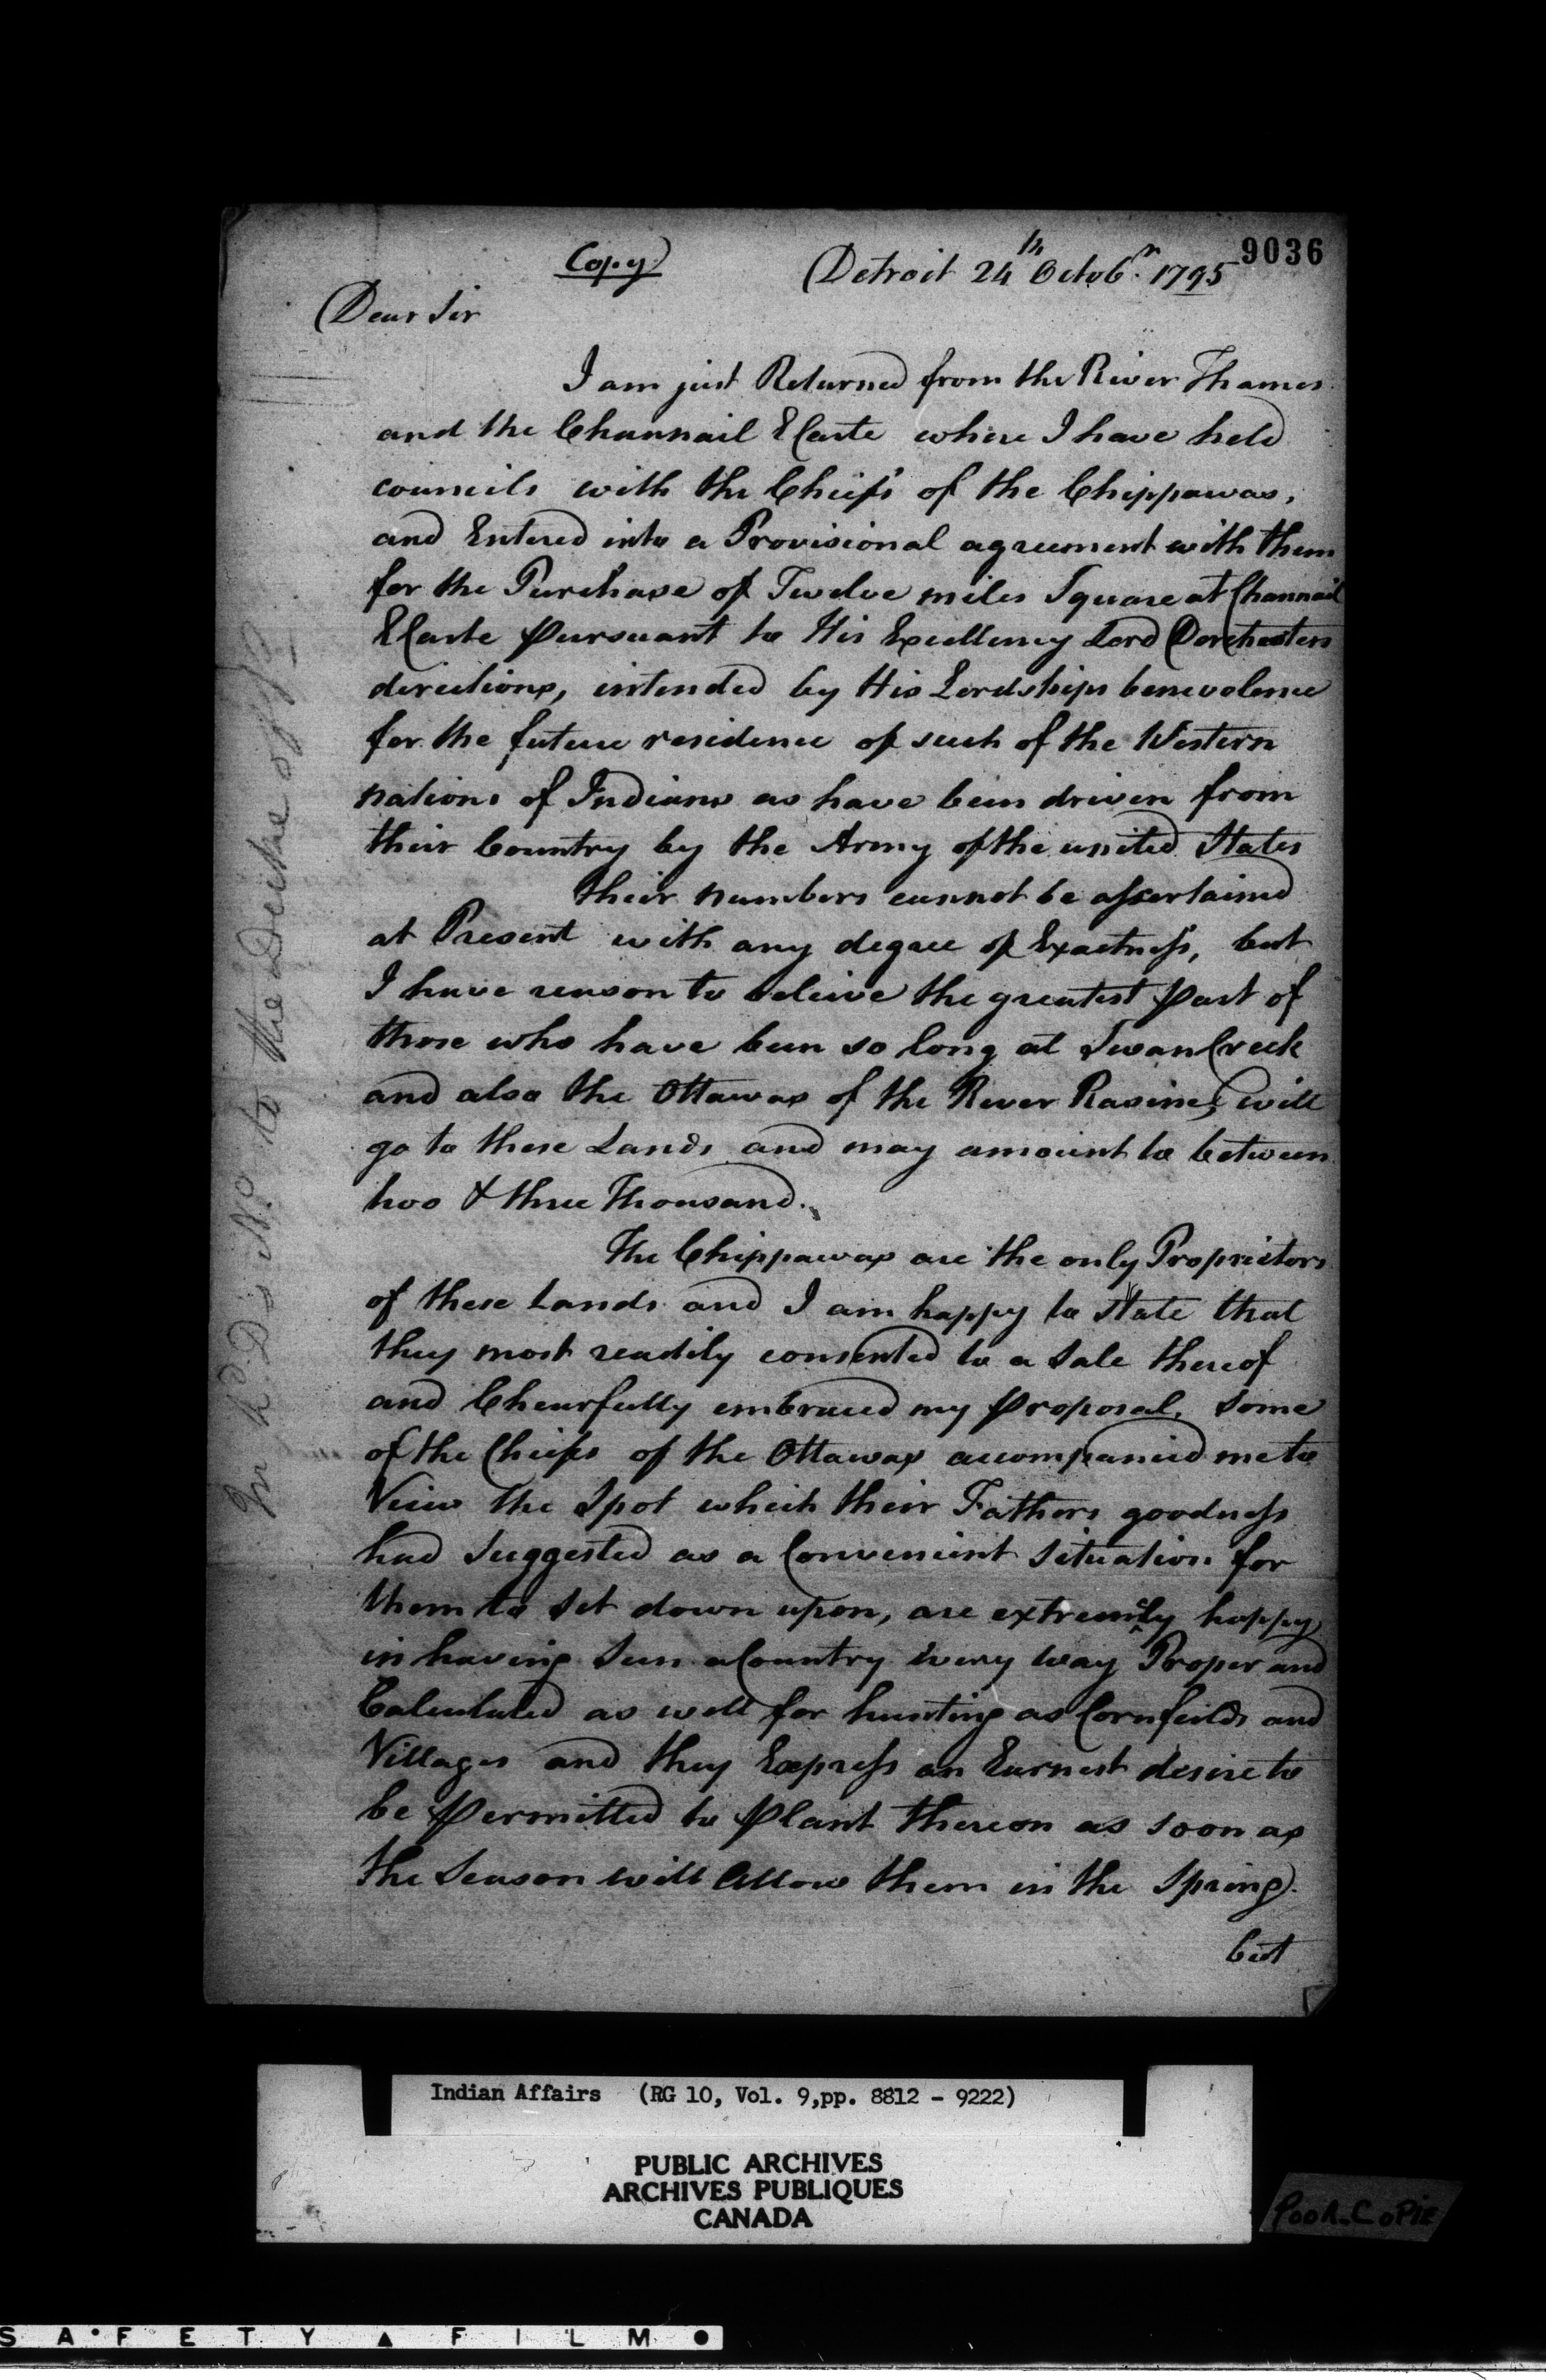 9036
Copy
Detroit 24th Octobr. 1795
Dear Sir
I am just Returned from the River Thames
and the Channail Ecarte where I have held
councils with the Chiefs of the Chippawas,
and Entered into a Provisional agreement with them
for the Purchase of Twelve miles Square at Channail
Ecarte pursuant to His Excellency Lord Dorchesters
directions, intended by His Lordships benevolence
for the future residence of such of the Western
nations of Indians as have been driven from
their Country by the Army of the united States
Their numbers cannot be assertained
at Present with any degree of Exactness, but
I have reason to beleive the greatest part of
those who have been so long at Swan Creek
and also the Ottawas of the River Rasine, will
go to these Lands and may amount to between
two & three Thousand.
The Chippawas are the only Proprietors
of these Lands and I am happy to state that
they most readily consented to a sale thereof
and Chearfully embraced my proposal, Some
of the Chiefs of the Ottawas accompanied me to
View the Spot which their Fathers goodness
had Suggested as a Convenient Situation for
them to set down upon, are extremely happy
in having Seen a Country every way Proper and
Calculated as well for hunting as Cornfeilds and
Villages and they Express an Earnest desire to
be permitted to plant thereon as soon as
the Season will Allow them in the Spring.
but
In Ld. D's No. to the Duke of
Indian Affairs (RG 10, Vol. 9,pp. 8812 - 9222)
PUBLIC ARCHIVES
ARCHIVES PUBLIQUES
CANADA
POOR COPIE
SAFETY ▲ FILM ●